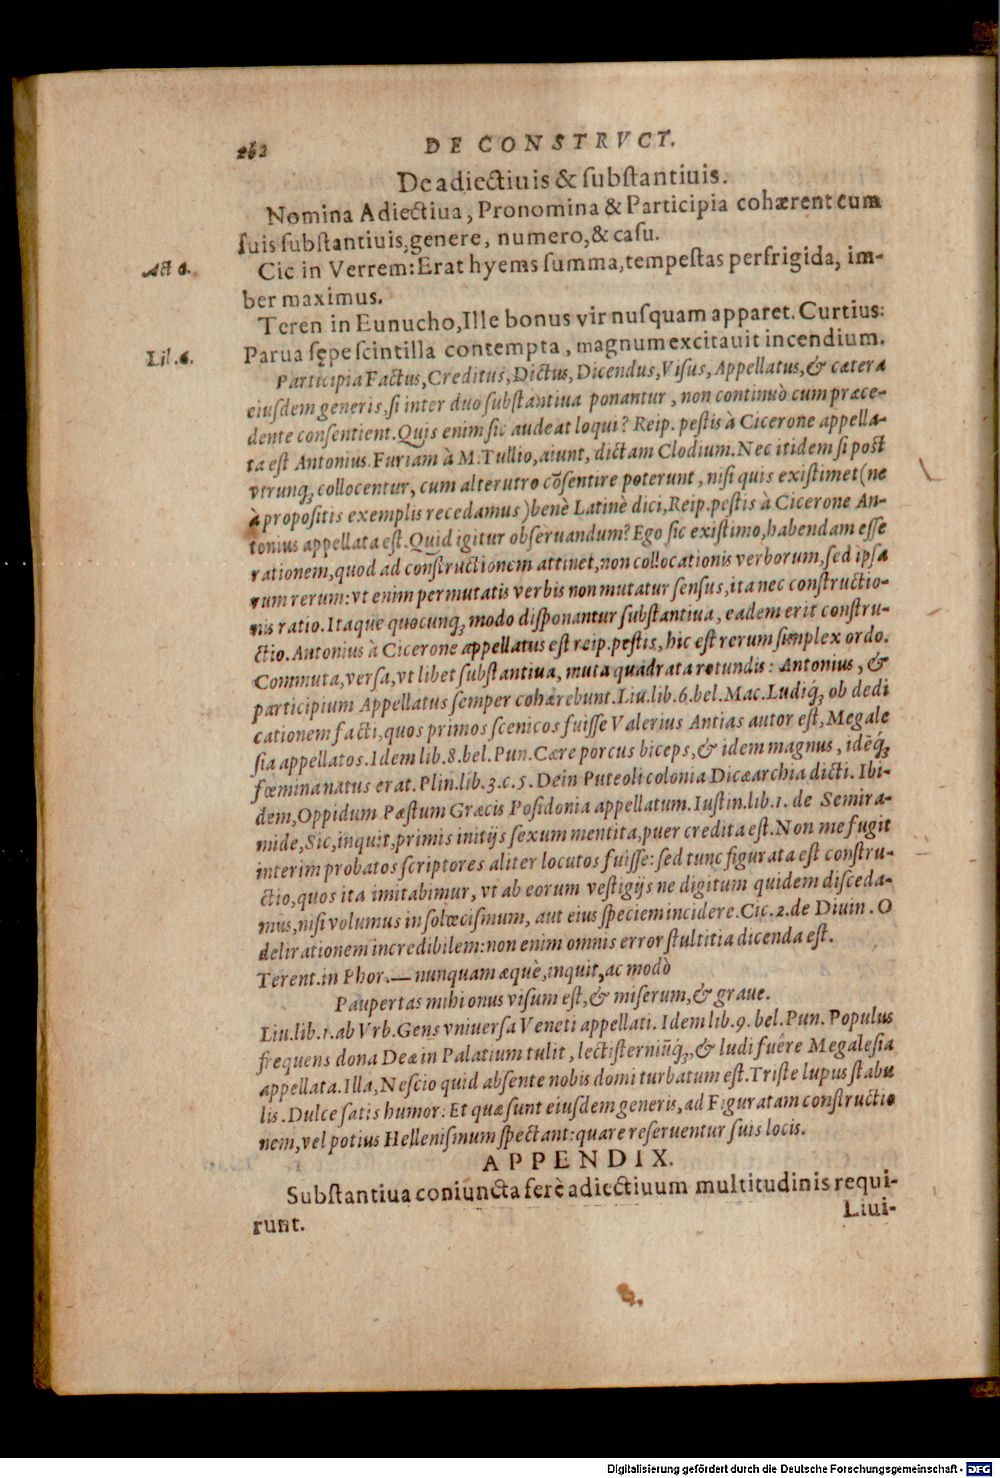 262
DE CONSTRVCT.
De adiectiuis & substantiuis.
Nomina Adiectiua, Pronomina & Participia cohærent cum
suis substantiuis, genere, numero, & casu.
Act 6.
Cic in Verrem: Erat hyems summa, tempestas perfrigida, im-
ber maximus.
Teren in Eunucho, Ille bonus vir nusquam apparet. Curtius:
Lil. 6.
Parua sępe scintilla contempta, magnum excitauit incendium.
Participia Factus, Creditus, Dictus, Dicendus, Visus, Appellatus, & cætera
eiusdem generis, si inter duo substantiua ponantur, non continuò cum præce-
dente consentient. Quis enim sic audeat loqui? Reip. pestis à Cicerone appella-
ta est Antonius. Furiam à M. Tullio, aiunt, dictam Clodium. Nec itidem si post
vtrunq; collocentur, cum alterutro cõsentire poterunt, nisi quis existimet (ne
à propositis exemplis recedamus) benè Latinè dici, Reip. pestis à Cicerone An-
tonius appellata est. Quid igitur obseruandum? Ego sic existimo, habendam esse
rationem, quod ad constructionem attinet, non collocationis verborum, sed ipsa
rum rerum: vt enim permutatis verbis non mutatur sensus, ita nec constructio-
nis ratio. Itaque quocunq; modo disponantur substantiua, eadem erit constru-
ctio. Antonius à Cicerone appellatus est reip. pestis, hic est rerum simplex ordo.
Commuta, versa, vt libet substantiua, muta quadrata rotundis: Antonius, &
participium Appellatus semper cohærebunt. Liu. lib. 6. bel. Mac. Ludiq́; ob dedi
cationem facti, quos primos scenicos fuisse Valerius Antias autor est, Megale
sia appellatos. Idem lib. 8. bel. Pun. Cære porcus biceps, & idem magnus, idēq́;
fœmina natus erat. Plin. lib. 3. c. 5. Dein Puteoli colonia Dicæarchia dicti. Ibi-
dem, Oppidum Pæstum Græcis Posidonia appellatum. Iustin. lib. 1. de Semira-
mide, Sic, inquit, primis initijs sexum mentita, puer credita est. Non me fugit
interim probatos scriptores aliter locutos fuisse: sed tunc figurata est constru-
ctio, quos ita imitabimur, vt ab eorum vestigijs ne digitum quidem disceda-
mus, nisi volumus in solœcismum, aut eius speciem incidere. Cic. 2. de Diuin. O
delirationem incredibilem: non enim omnis error stultitia dicenda est.
Terent. in Phor. — nunquam æquè, inquit, ac modò
Paupertas mihi onus visum est, & miserum, & graue.
Liu. lib. 1. ab Vrb. Gens vniuersa Veneti appellati. Idem lib. 9. bel. Pun. Populus
frequens dona Deæ in Palatium tulit, lectisterniūq́;, & ludi fuêre Megalesia
appellata. Illa, Nescio quid absente nobis domi turbatum est. Triste lupus stabu
lis. Dulce satis humor: Et quæ sunt eiusdem generis, ad Figuratam constructio
nem, vel potius Hellenismum spectant: quare reseruentur suis locis.
APPENDIX.
Substantiua coniuncta ferè adiectiuum multitudinis requi-
runt.
Liui-
Digitalisierung gefördert durch die Deutsche Forschungsgemeinschaft - DFG